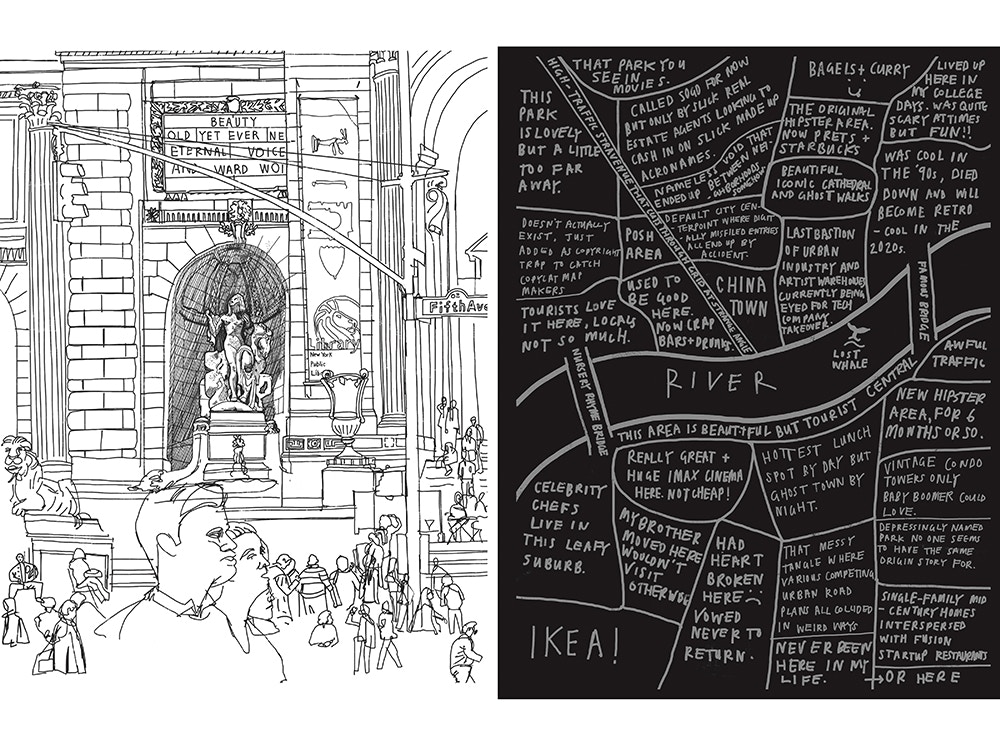 BEAUTY
OLD YET EVER NE
ETERNAL VOICE
AND WARD WOI
FifthAve
Library
New York
Public
Lib
HIGH-TRAFFIC STRAVENUE THAT CUTS THROUGH GRID AT STRANGE ANGLE
THAT PARK YOU
SEE IN
MOVIES.
THIS
PARK
IS LOVELY
BUT A LITTLE
TOO FAR
AWAY.
CALLED SOGO FOR NOW
BUT ONLY BY SLICK REAL
ESTATE AGENTS LOOKING TO
CASH IN ON SLICK MADE UP
ACRONAMES.
NAMELESS VOID THAT
ENDED UP BETWEEN NEI-
GHBORHOODS
SOMEHOW
BAGELS + CURRY
LIVED UP
HERE IN
MY COLLEGE
DAYS. WAS QUITE
SCARY AT TIMES
BUT FUN!!
THE ORIGINAL
HIPSTER AREA.
NOW PRETS +
STARBUCKS
BEAUTIFUL
ICONIC CATHEDRAL
AND GHOST WALKS
WAS COOL IN
THE '90s, DIED
DOWN AND WILL
BECOME RETRO
-COOL IN THE
2020s.
DOESN'T ACTUALLY
EXIST, JUST
ADDED AS COPYRIGHT
TRAP TO CATCH
COPYCAT MAP
MAKERS
POSH
AREA
DEFAULT CITY CEN-
TERPOINT WHERE DIGIT
ALLY MISFILED ENTRIES
ALL END UP BY
ACCIDENT.
LAST BASTION
OF URBAN
INDUSTRY AND
ARTIST WAREHOUSES
CURRENTLY BEING
EYED FOR TECH
COMPANY
TAKEOVER.
TOURISTS LOVE
IT HERE, LOCALS
NOT SO MUCH.
USED TO
BE GOOD
HERE.
NOW CRAP
BARS + DRUNKS.
CHINA
TOWN
FAMOUS BRIDGE
LOST
WHALE
AWFUL
TRAFFIC
NURSERY RHYME BRIDGE
RIVER
THIS AREA IS BEAUTIFUL BUT TOURIST CENTRAL
NEW HIPSTER
AREA, FOR 6
MONTHS OR SO.
REALLY GREAT +
HUGE IMAX CINEMA
HERE. NOT CHEAP!
HOTTEST LUNCH
SPOT BY DAY BUT
GHOST TOWN BY
NIGHT.
VINTAGE CONDO
TOWERS ONLY
BABY BOOMER COULD
LOVE.
CELEBRITY
CHEFS
LIVE IN
THIS LEAFY
SUBURB.
MY BROTHER
MOVED HERE
WOULDN'T
VISIT
OTHERWISE
HAD
HEART
BROKEN
HERE
VOWED
NEVER TO
RETURN.
THAT MESSY
TANGLE WHERE
VARIOUS COMPETING
URBAN ROAD
PLANS ALL COLLIDED
IN WEIRD WAYS
DEPRESSINGLY NAMED
PARK NO ONE SEEMS
TO HAVE THE SAME
ORIGIN STORY FOR.
SINGLE-FAMILY MID
-CENTURY HOMES
INTERSPERSED
WITH FUSION
STARTUP RESTAURANTS
IKEA!
NEVER BEEN
HERE IN MY
LIFE.
→OR HERE